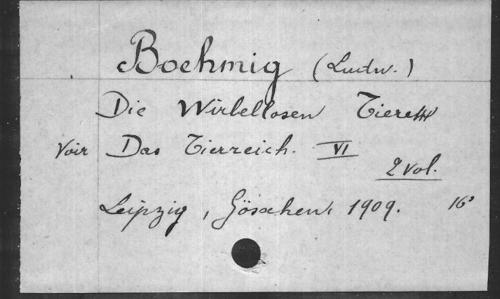 Boehmig (Ludw.)
Die Wirbellosen Tiere
voir Das Tierreich. VI
2 vol.
Leipzig, Göschen, 1909. 16°